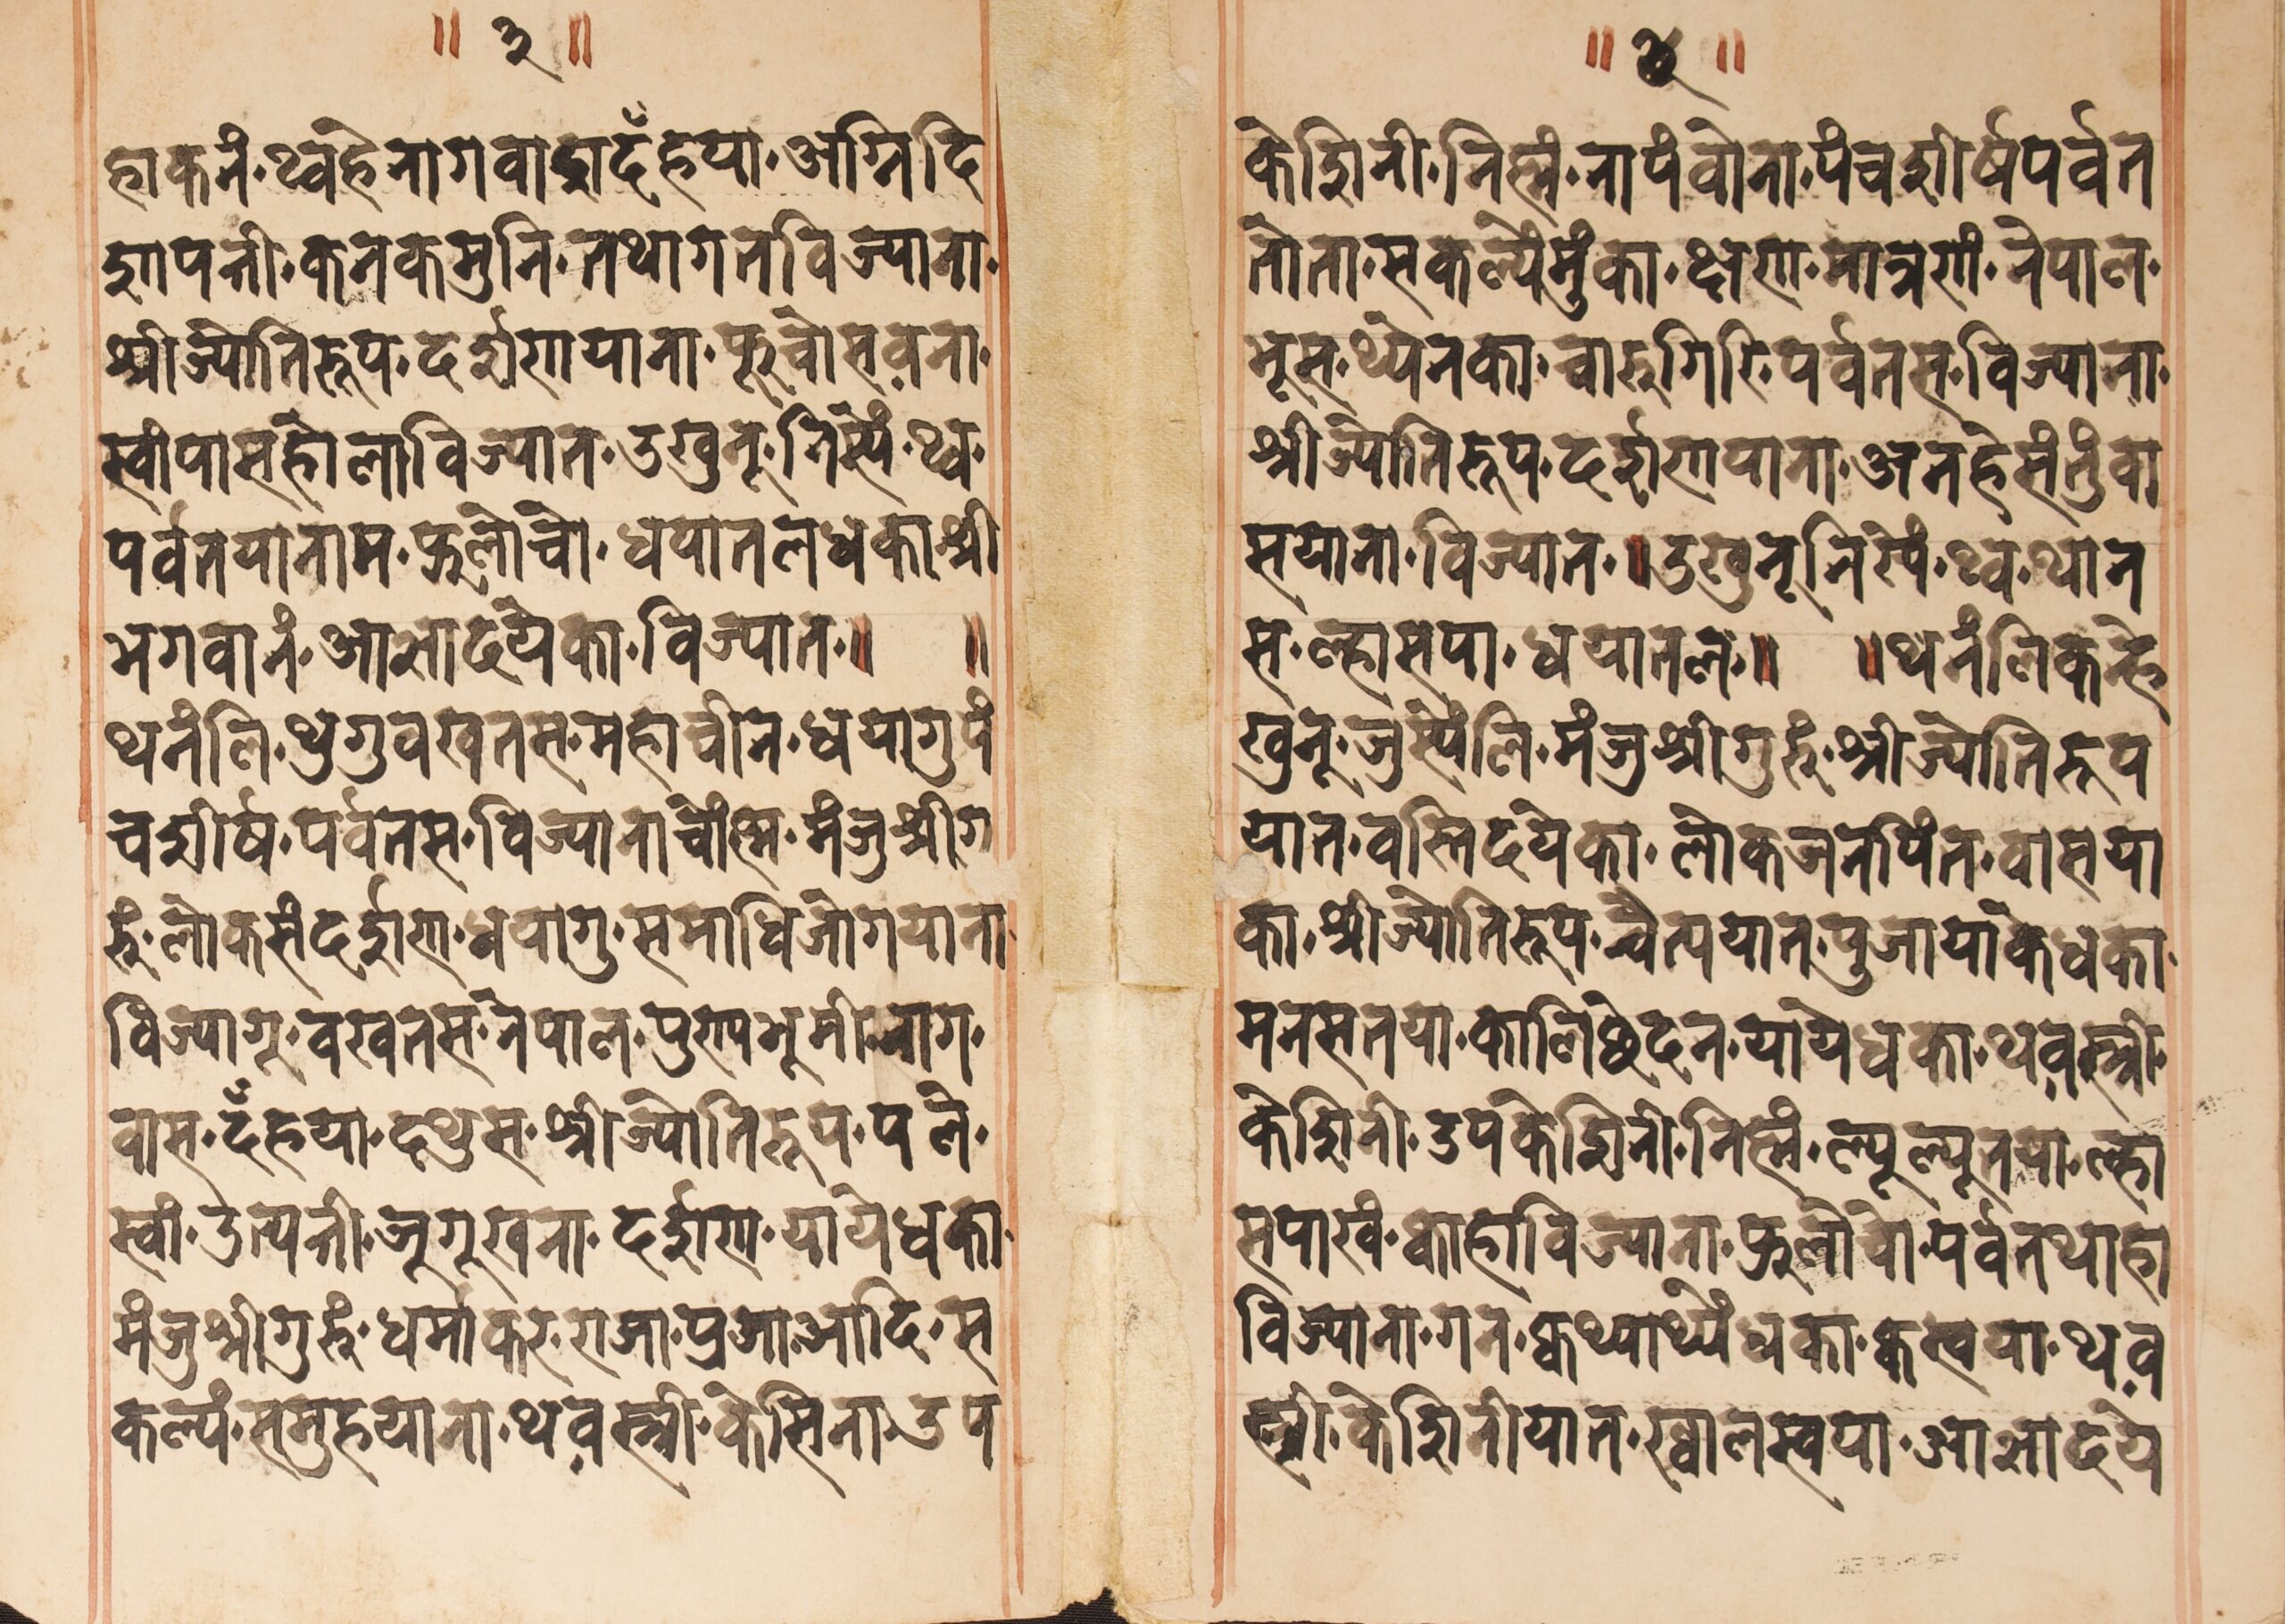 ॥ ३ ॥
हाकनं॰थ्वहे नागवाहादँहया॰अग्निदि
शापत्ती॰कनकमुनि॰तथागतविज्याना॰
श्रीज्योतिरूप॰दर्शणयाना॰फूचोसव़ना॰
स्वांपासहोलाविज्यात॰उखुनू॰निस्यें॰थ्व॰
पर्वतयानाम॰फूलोचो॰धयातलधका॰श्री
भगवानं॰आज्ञादयेका॰विज्यात॰॥ ॥
थनंलि॰थुगुवखतस॰महाचीन॰धयागुपं
चशीर्ष॰पर्वतस॰विज्यानाचोंह्म॰मंजुश्रीगु
रुं॰लोकसंदर्शण॰धयागु॰समाधिजोगयाना॰
विज्यागू॰वखतस॰नेपाल॰पुण्यभूमी॰नाग॰
वास॰दँहया॰दथुस॰श्रीज्योतिरूप॰पले॰
स्वां॰उत्पत्ती॰जूगूखना॰दर्शण॰यायेधका॰
मंजुश्रीगुरुं॰धर्माकर॰राजा॰प्रजा॰आदि॰स
कल्यं॰समुहयाना॰थव़स्त्री॰केसिना॰उप
॥ ४ ॥
केशिनी॰निह्मं॰नापंवोना॰पंचशीर्षपर्वत
तोता॰सकल्येंमुंका॰क्षणमात्रणं॰नेपाल॰
भूस॰थ्येनका॰चारुगिरि॰पर्वतस॰विज्याना॰
श्रीज्योतिरूप॰दर्शणयाना॰अनहेसंतुंवा
सयाना॰विज्यात॰॥उखुनूनिस्यें॰थ्व॰थान
स॰ल्हासपा॰धयातल॰॥ ॥थनंलिकन्हे
खुनू॰जुस्येंलि॰मंजुश्रीगुरुं॰श्रीज्योतिरूप
यात॰वस्तिदयेका॰लोकजनपिंत॰वासया
का॰श्रीज्योतिरूप॰चैत्ययात॰पुजायाकेधका॰
मनसतया॰कालिछेदन॰यायेधका॰थव़स्त्री॰
केशिनी॰उपकेशिनी॰निह्मं॰ल्यूल्यूतया॰ल्हा
सपाखं॰क्वाहाविज्याना॰फूलोचो॰पर्वतथाहा
विज्याना॰गन॰क्वथ्याथ्यें धका॰क्वस्वया॰थव़
स्त्री॰केशिनीयात॰ख्वालस्वया॰आज्ञादये